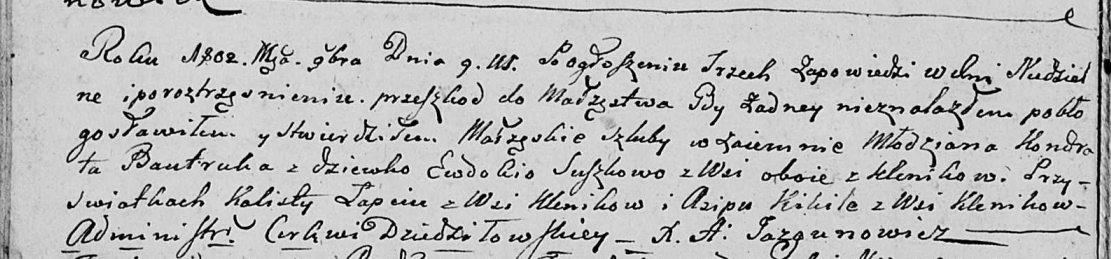 Roku 1802. Msca. 9bra Dnia 9. V.S. Po ogłoszeniu Trzech Zapowiedzi w dni Niedziel
ne i po roztrzęsnieniu przeszkod do Małżęstwa Gdy Żadney nieznalazłem pobło
gosławiłem y stwierdziłem Małżęskie Szluby w zaiemnie Młodziana Kondra
ta Bautruka z dziewko Ewdokio Suszkowo z Wsi oboie z Klenikow. Przy-
swiatkach Kalisty Łapciu z Wsi Klenikow i Asipu Kikile z Wsi Klenikow-
Administr. Cerkwi Dziedziłowskiey - X. A. Jazgunowicz